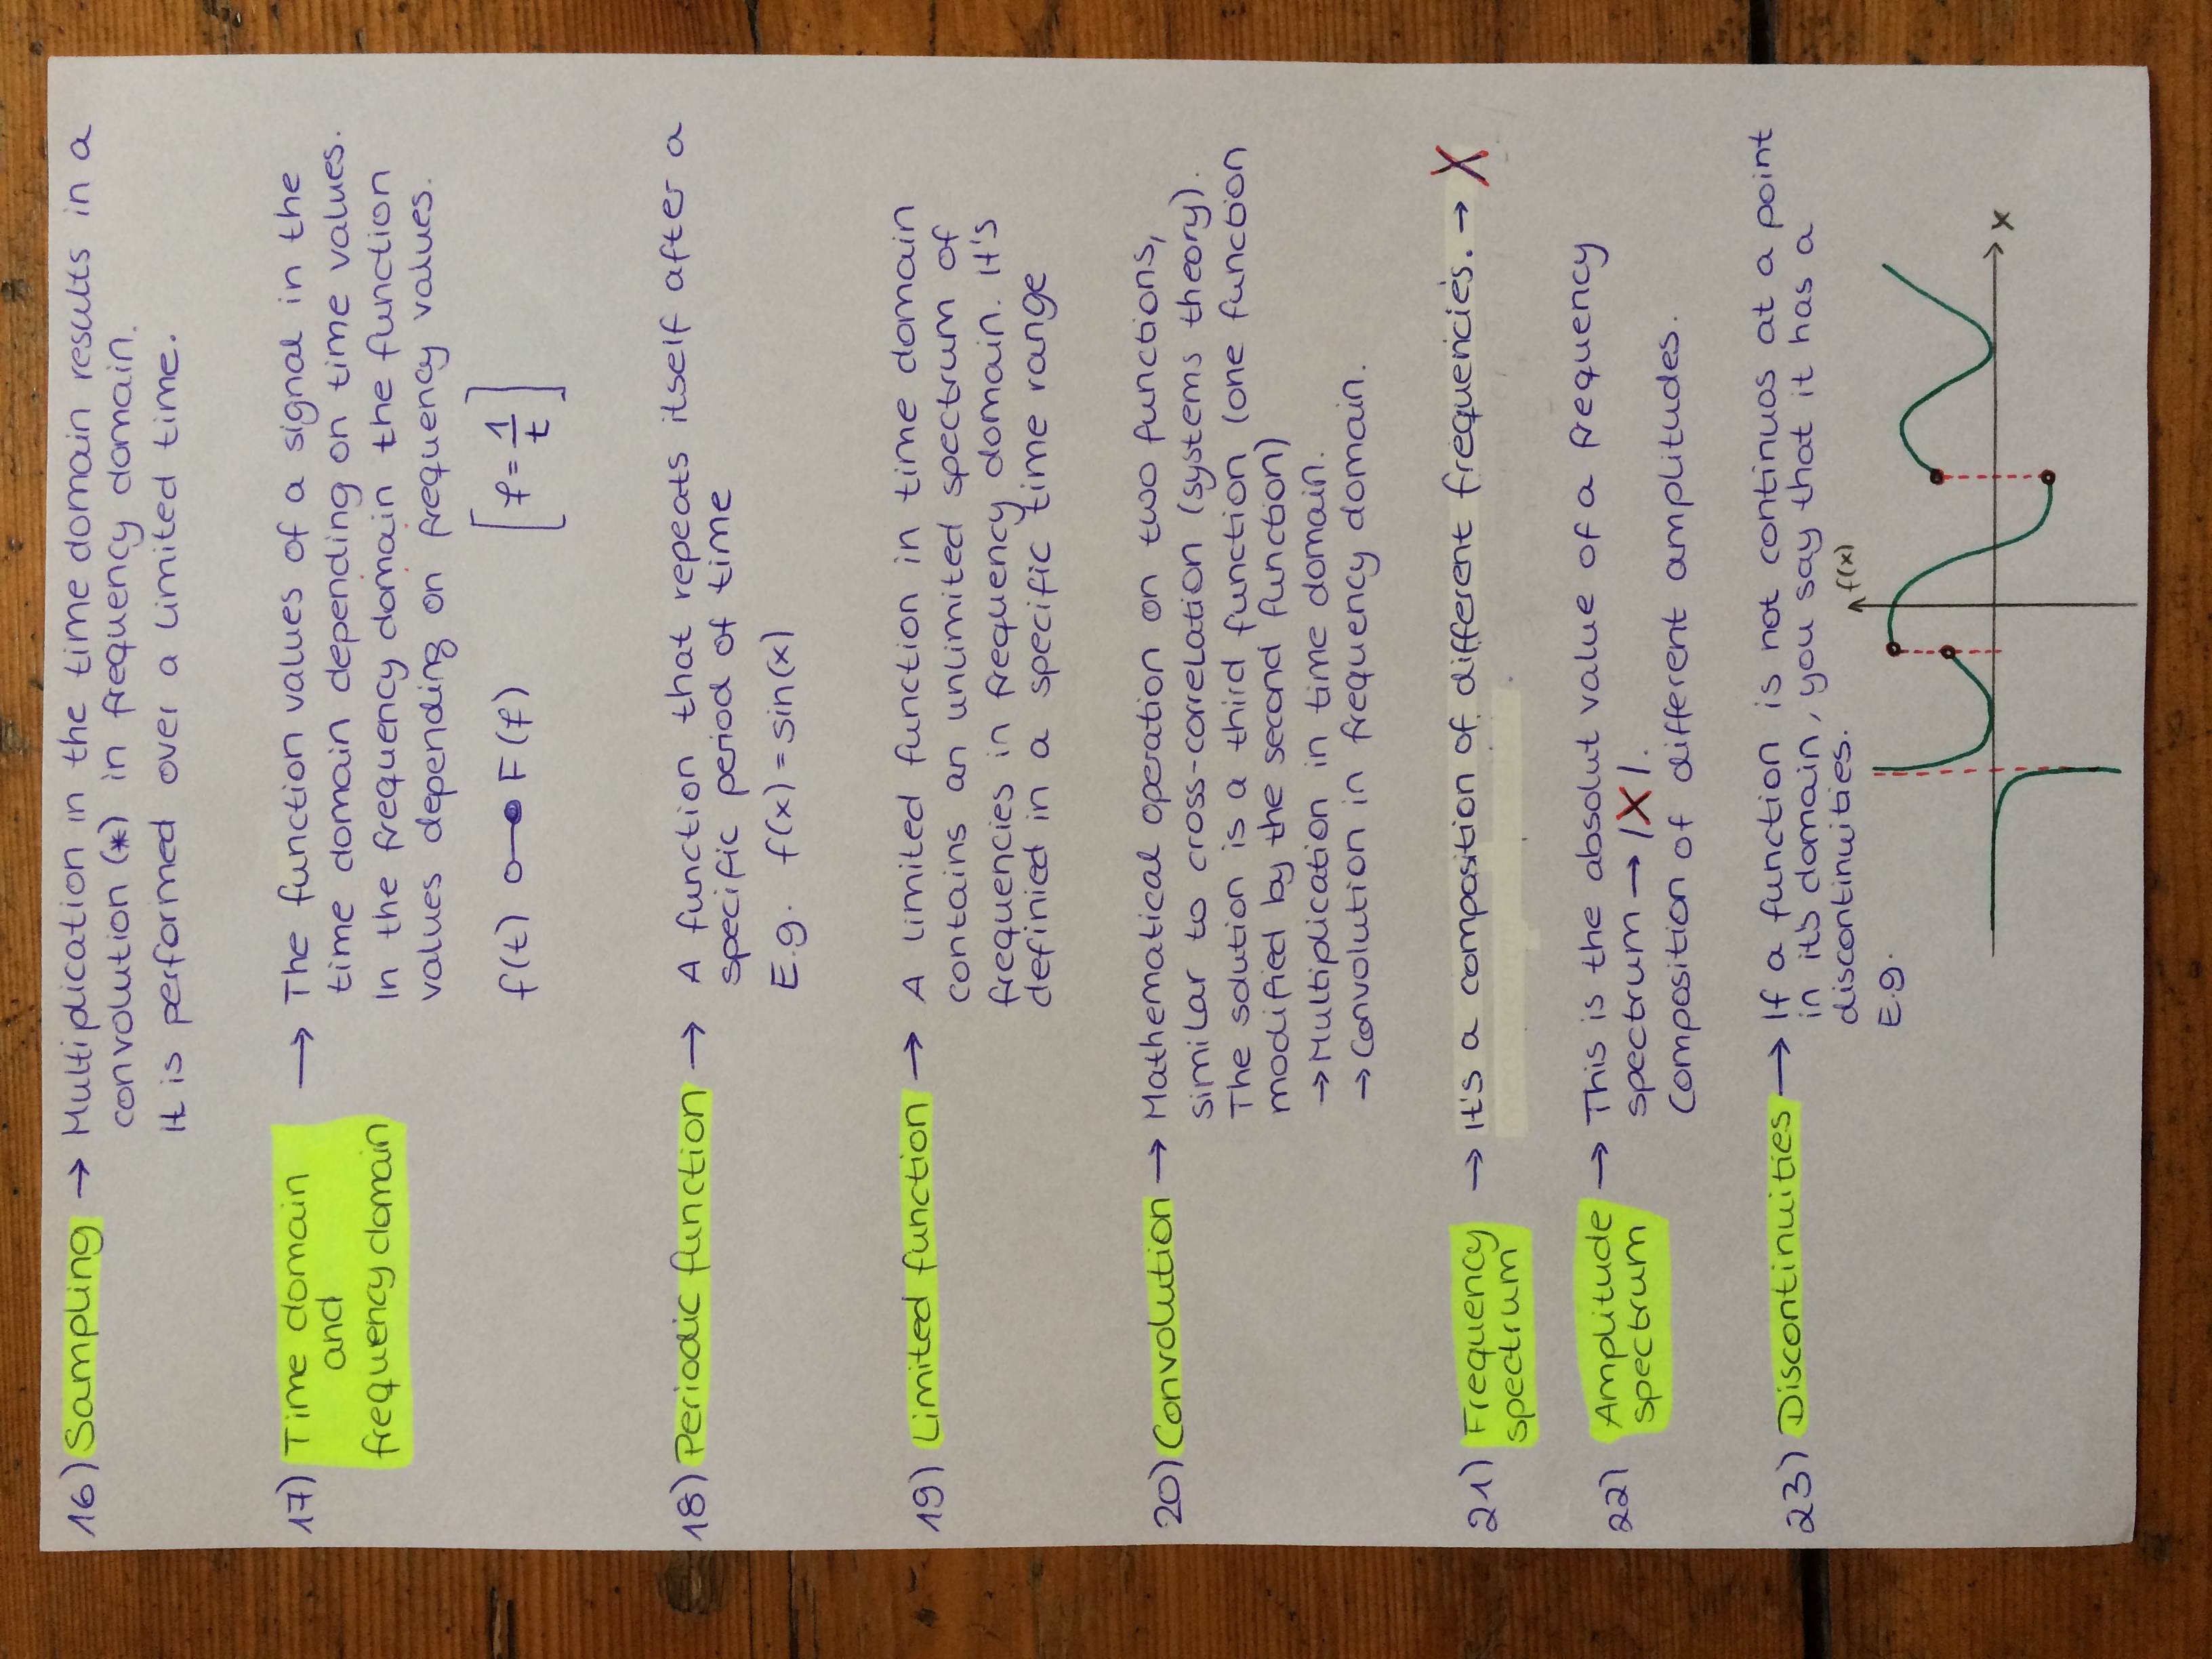 16) Sampling → Multiplication in the time domain results in a
convolution (*) in frequency domain.
It is performed over a limited time.
17) Time domain and frequency domain → The function values of a signal in the
time domain depending on time values.
In the frequency domain the function
values depending on frequency values.
f(t) ○—● F(f) [f = 1/t]
18) Periodic function → A function that repeats itself after a
specific period of time
E.g. f(x) = sin(x)
19) Limited function → A limited function in time domain
contains an unlimited spectrum of
frequencies in frequency domain. It's
definied in a specific time range
20) Convolution → Mathematical operation on two functions,
similar to cross-correlation (systems theory).
The solution is a third function (one function
modified by the second function)
→ Multiplication in time domain.
→ Convolution in frequency domain.
21) Frequency spectrum → It's a composition of different frequencies. → X
22) Amplitude spectrum → This is the absolut value of a frequency
spectrum → |X|.
Composition of different amplitudes.
23) Discontinuities → If a function is not continuos at a point
in it's domain, you say that it has a
discontinuities.
E.g.
f(x)
x